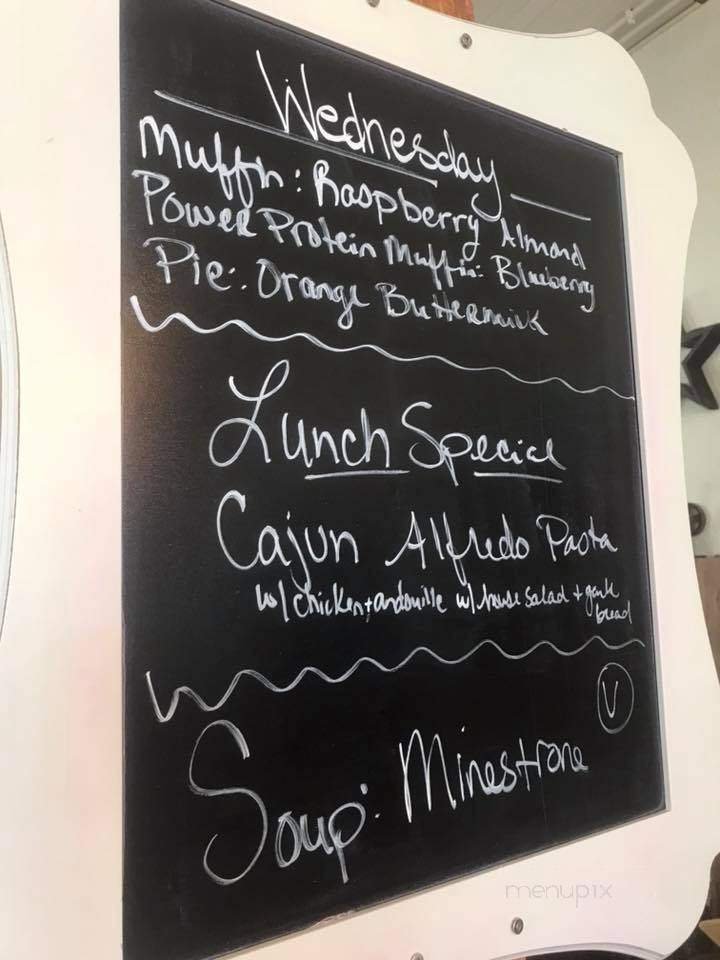 Wednesday
Muffin: Raspberry Almond
Power Protein Muffin: Blueberry
Pie: Orange Buttermilk
Lunch Special
Cajun Alfredo Pasta
w/ chicken + andouille w/ house salad + garlic
bread
V
Soup: Minestrone
menupix